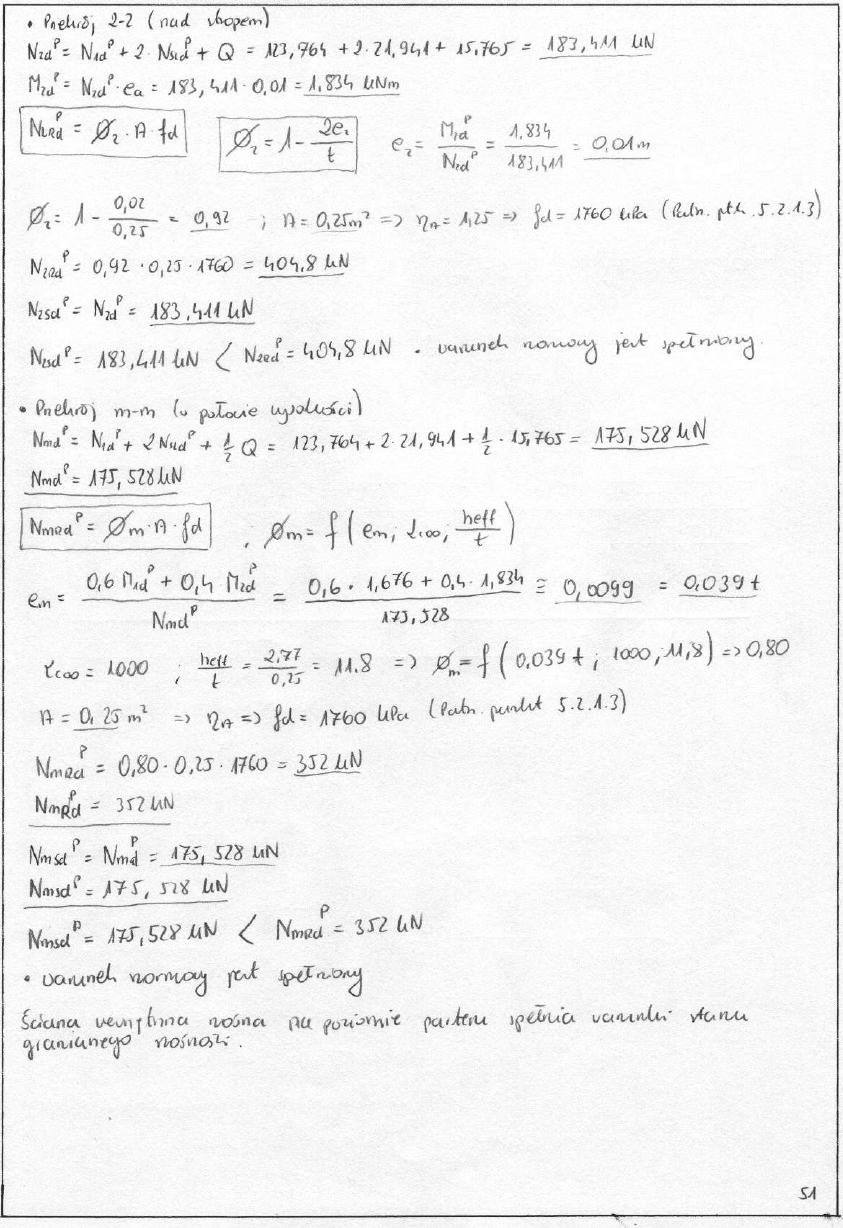 • Przekrój 2-2 (nad stropem)
N2dᴾ = N1dᴾ + 2·NsLdᴾ + Q = 123,764 + 2·21,941 + 15,765 = 183,411 kN
M2dᴾ = N2dᴾ·ea = 183,411·0,01 = 1,834 kNm
N2Rdᴾ = Ø2·A·fd   Ø2 = 1 - 2e2/t   e2 = M2dᴾ/N2dᴾ = 1,834/183,411 = 0,01 m
Ø2 = 1 - 0,02/0,25 = 0,92 ; A = 0,25 m² => ηA = 1,25 => fd = 1760 kPa (Patrz. pkt. 5.2.1.3)
N2Rdᴾ = 0,92 · 0,25 · 1760 = 404,8 kN
N2sdᴾ = N2dᴾ = 183,411 kN
N2sdᴾ = 183,411 kN < N2Rdᴾ = 404,8 kN • warunek normowy jest spełniony.
• Przekrój m-m (w połowie wysokości)
Nmdᴾ = N1dᴾ + 2NsLdᴾ + 1/2 Q = 123,764 + 2·21,941 + 1/2 · 15,765 = 175,528 kN
Nmdᴾ = 175,528 kN
NmRdᴾ = Øm·A·fd ; Øm = f ( em; αc∞; heff/t )
em = (0,6 M1dᴾ + 0,4 M2dᴾ)/Nmdᴾ = (0,6 · 1,676 + 0,4 · 1,834)/175,528 ≅ 0,0099 = 0,039 t
αc∞ = 1000 ; heff/t = 2,77/0,25 = 11.8 => Øm = f ( 0,039 t ; 1000 ; 11,8 ) => 0,80
A = 0,25 m² => ηA => fd = 1760 kPa (Patrz. punkt 5.2.1.3)
NmRdᴾ = 0,80 · 0,25 · 1760 = 352 kN
NmRdᴾ = 352 kN
Nmsdᴾ = Nmdᴾ = 175,528 kN
Nmsdᴾ = 175,528 kN
Nmsdᴾ = 175,528 kN < NmRdᴾ = 352 kN
• warunek normowy jest spełniony
Ściana wewnętrzna nośna na poziomie parteru spełnia warunki stanu
granicznego nośności.
51